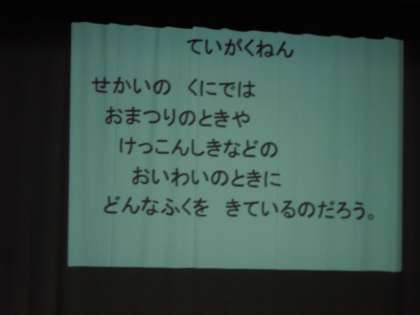 ていがくねん
せかいの くにでは
おまつりのときや
けっこんしきなどの
おいわいのときに
どんなふくを きているのだろう。